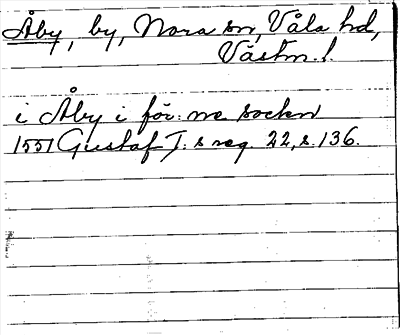 Åby, by, Nora sn, Våla hd,
Västm. l.
i Åby i för: ne sockn
1551 Gustaf I: s reg. 22, s. 136.